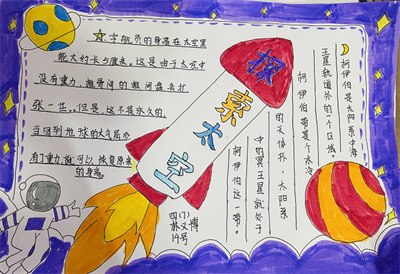 探索太空
宇航员的身高在太空里
能大约长5厘米。这是由于太空中
没有重力,推骨间的椎间盘会扩
张一些。但是,这不是永久的,
当回到地球的大气层后
有了重力就可以恢复原来
的身高
柯伊伯是太阳系中海
王星轨道外的一个区域。
柯伊伯带是个冰冷
的天体环,太阳系
中的冥王星就处于
柯伊伯这一带。
四(1)
林文博
19号